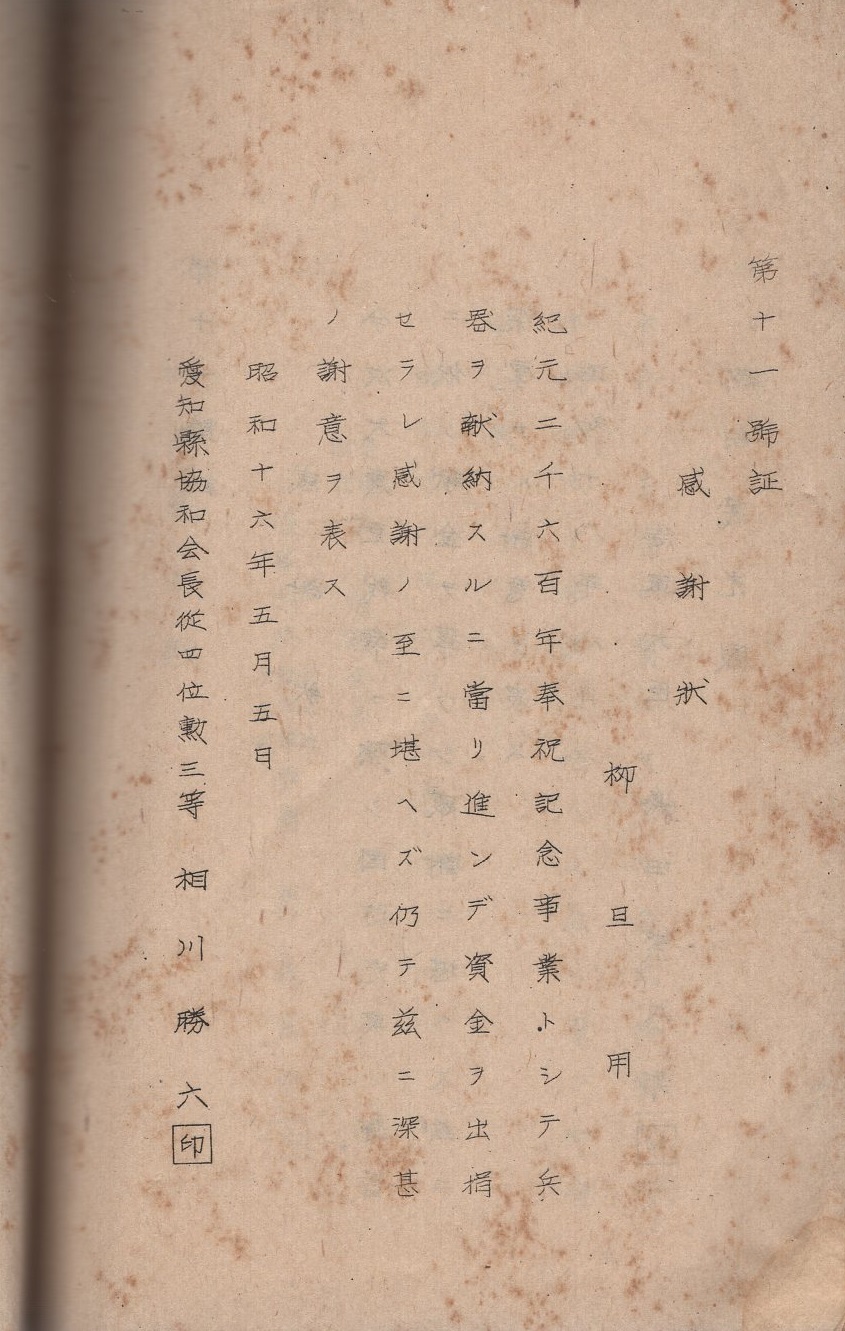 第十一號証
感謝状
柳旦用
紀元二千六百年奉祝記念事業トシテ兵
器ヲ献納スルニ當リ進ンデ資金ヲ出捐
セラレ感謝ノ至ニ堪ヘズ仍テ茲ニ深甚
ノ謝意ヲ表ス
昭和十六年五月五日
愛知縣協和会長従四位勲三等 相川勝六 印